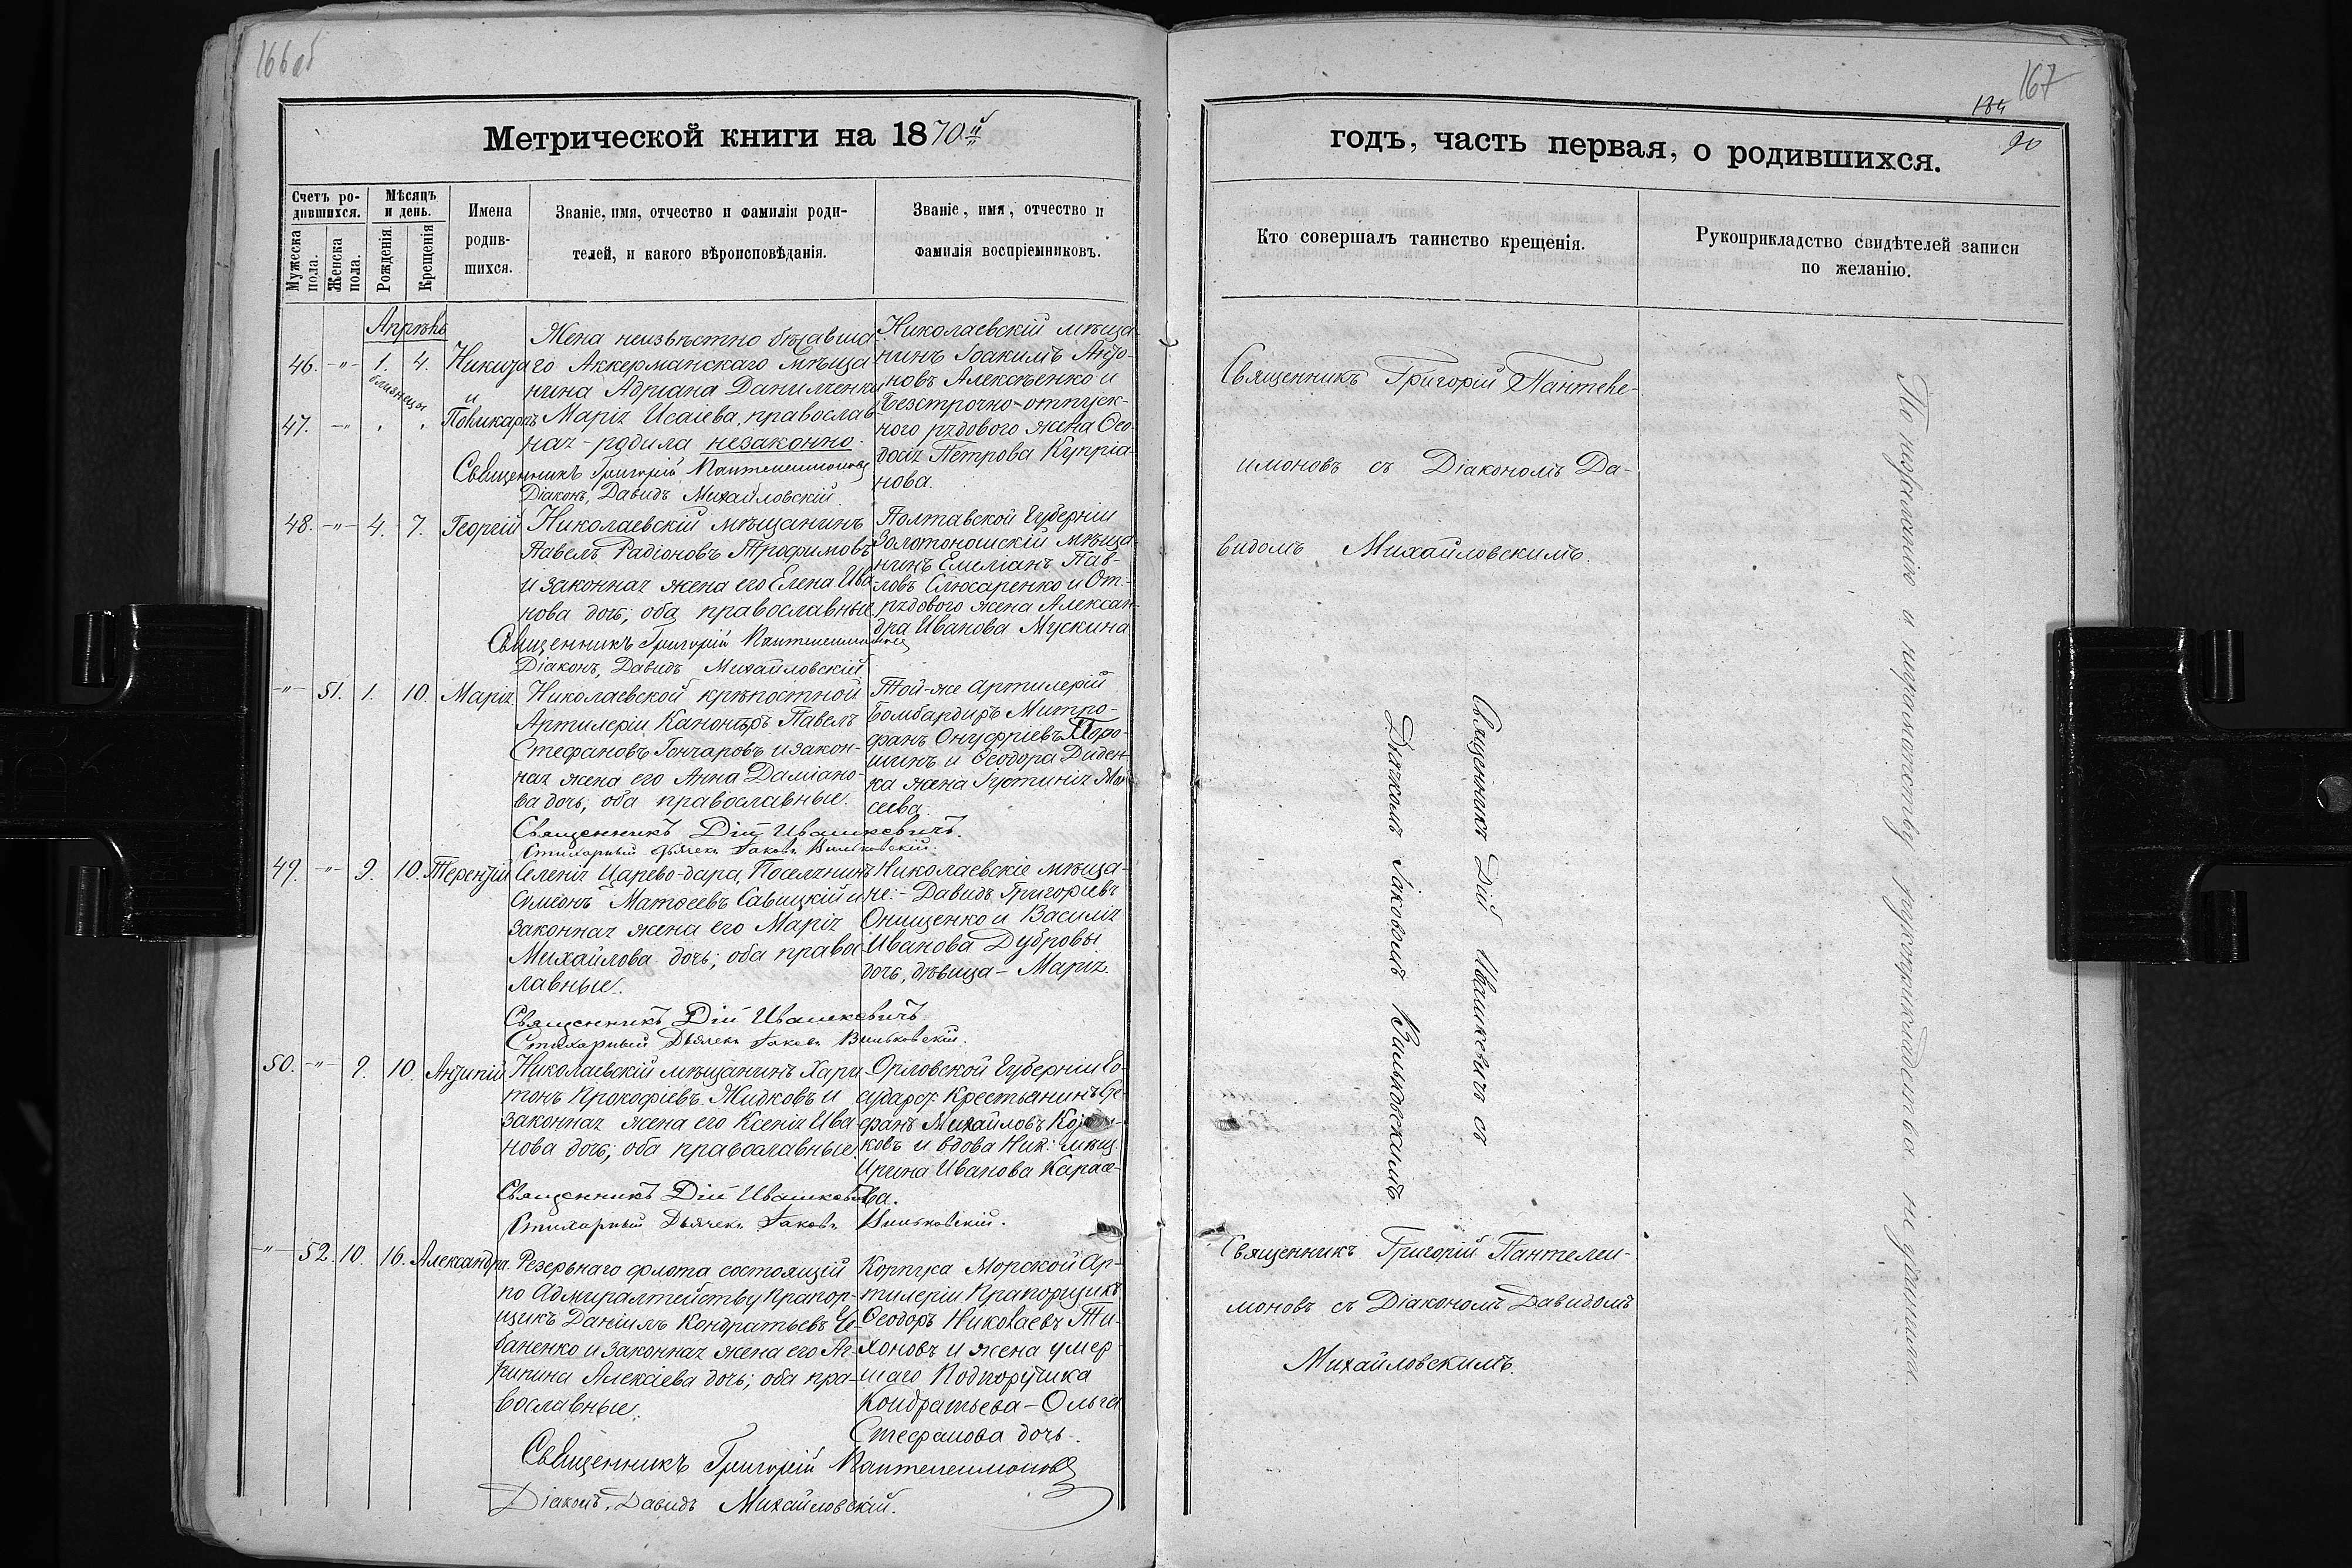 166 об
Метрической книги на 1870й
Счетъ ро-
дившихся.
Мѣсяцъ
и день.
Мужеска
пола.
Женска
пола.
Рожденія.
Крещенія
Имена
родив-
шихся.
Званіе, имя, отчество и фамилія роди-
телей, и какого вѣроисповѣданія.
Званіе, имя, отчество и
фамилія воспріемниковъ.
Апрѣль
46. -"- 1. 4. Никита
близнецы
и
47. -"- " " Поликарпъ
Жена неизвѣстно бѣжавша
го Аккерманскаго мѣща
нина Адріана Данильченки
Марія Исаіева, православ-
ная - родила незаконно.
Священникъ Григорій Пантелеимоновъ
Діаконъ, Давидъ Михайловскій
Николаевскій мѣща-
нинъ Іоакимъ Анто-
новъ Алексѣенко и
Безсрочно-отпуск-
ного рядового жена Ѳео-
досія Петрова Купріа-
нова.
48. -"- 4. 7. Георгій
Николаевскій мѣщанинъ
Павелъ Радіоновъ Трофимовъ
и законная жена его Елена Ива
нова дочь; оба православные
Священникъ Григорій Пантелеимоновъ
Діаконъ, Давидъ Михайловскій
Полтавской Губерніи
Золотоношскій мѣща-
нинъ Емеліанъ Пав-
ловъ Слюсаренко и От.-
рядового жена Алексан-
дра Иванова Мускина
-"- 51. 1. 10. Марія
Николаевской крѣпостной
Артилеріи Канониръ Павелъ
Стефановъ Гончаровъ и закон-
ная жена его Анна Даміано-
ва дочь; оба православные.
Священникъ Дій Ивашкевичъ.
Стихарный Дьячекъ Іаковъ Вильковскій.
Той-же Артилерій
Бомбардиръ Митро-
фанъ Онуфріевъ Поро-
шинъ и Ѳеодора Диден
ка жена Іустинія Мои
сеева.
49. -"- 9. 10. Терентій
Селенія Царево-дара, Поселянинъ
Симеонъ Матѳеевъ Савицкій и
законная жена его Марія
Михайлова дочь; оба право
лавные.
Священникъ Дій Ивашкевичъ
Стихарный Дьячекъ Іаковъ Вильковскій.
Николаевскіе мѣща-
не: - Давидъ Григоріевъ
Онищенко и Василія
Иванова Дубровы
дочь, дѣвица - Марія.
50. -"- 9. 10. Антипій
Николаевскій мѣщанинъ Хари
тонъ Прокофіевъ Жидковъ и
законная жена его Ксенія Ива
нова дочь; оба православные.
Священникъ Дій Ивашкевичъ
Стихарный Дьячекъ Іаковъ Вильковскій.
Орловской Губерніи Го-
сударст: Крестьянинъ Сте
фанъ Михайловъ
ковъ и вдова Ник: мѣщ.
Ирина Иванова Карасе-
ва.
-"- 52. 10. 16. Александра.
Резервнаго флота состоящій
по Адмиралтейству Прапор-
щикъ Даніилъ Кондратьевъ Че-
баненко и законная жена его Аг-
рипина Алексіева дочь; оба пра-
вославные.
Священникъ Григорій Пантелеимоновъ
Діаконъ, Давидъ Михайловскій.
Корпуса Морской Ар-
тилеріи Прапорщикъ
Ѳеодоръ Николаевъ Ти-
хоновъ и жена умер-
шаго Подпорутчика
Кондратьева - Ольга
Стефанова дочь.
167
184
90
годъ, часть первая, о родившихся.
Кто совершалъ таинство крещенія.
Рукоприкладство свидѣтелей записи
по желанію.
Священникъ Григорій Пантеле-
имоновъ съ Діакономъ Да-
видомъ Михайловскимъ.
Священникъ Дій Ивашкевичъ съ
Дьячкомъ Іаковомъ Вильковскимъ.
Священникъ Григорій Пантелеи-
моновъ съ Діакономъ Давидомъ
Михайловскимъ.
По нежеланію и неграмотству рукоприкладства не удѣлали.